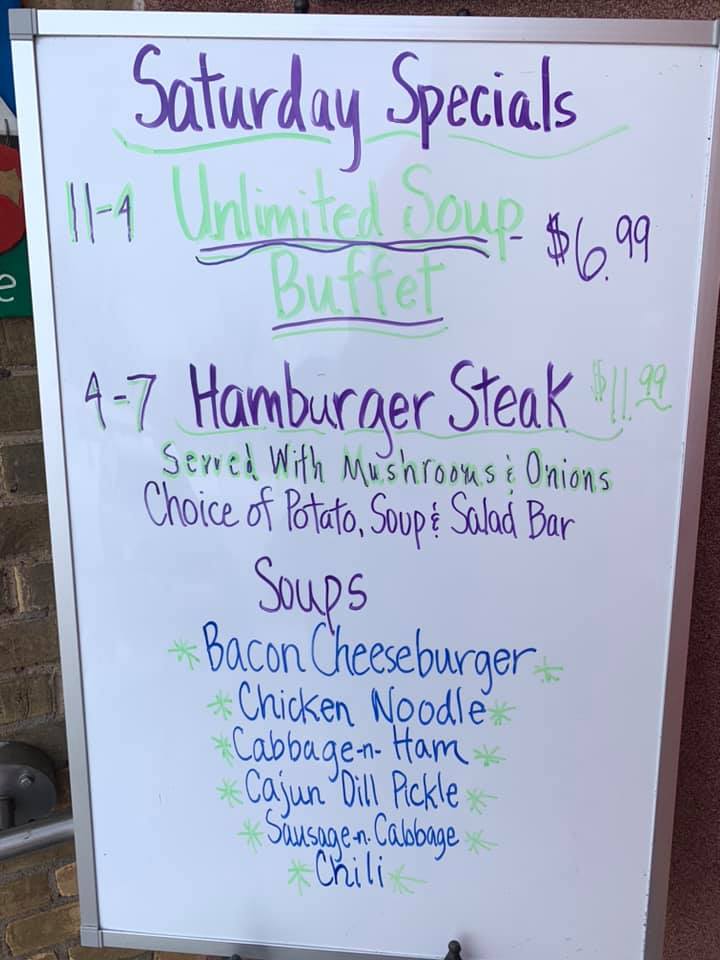 Saturday Specials
11-4 Unlimited Soup - $6.99
Buffet
4-7 Hamburger Steak $11.99
Served With Mushrooms & Onions
Choice of Potato, Soup & Salad Bar
Soups
* Bacon Cheeseburger *
* Chicken Noodle *
* Cabbage-n-Ham *
* Cajun Dill Pickle *
* Sausage-n-Cabbage *
* Chili *
e